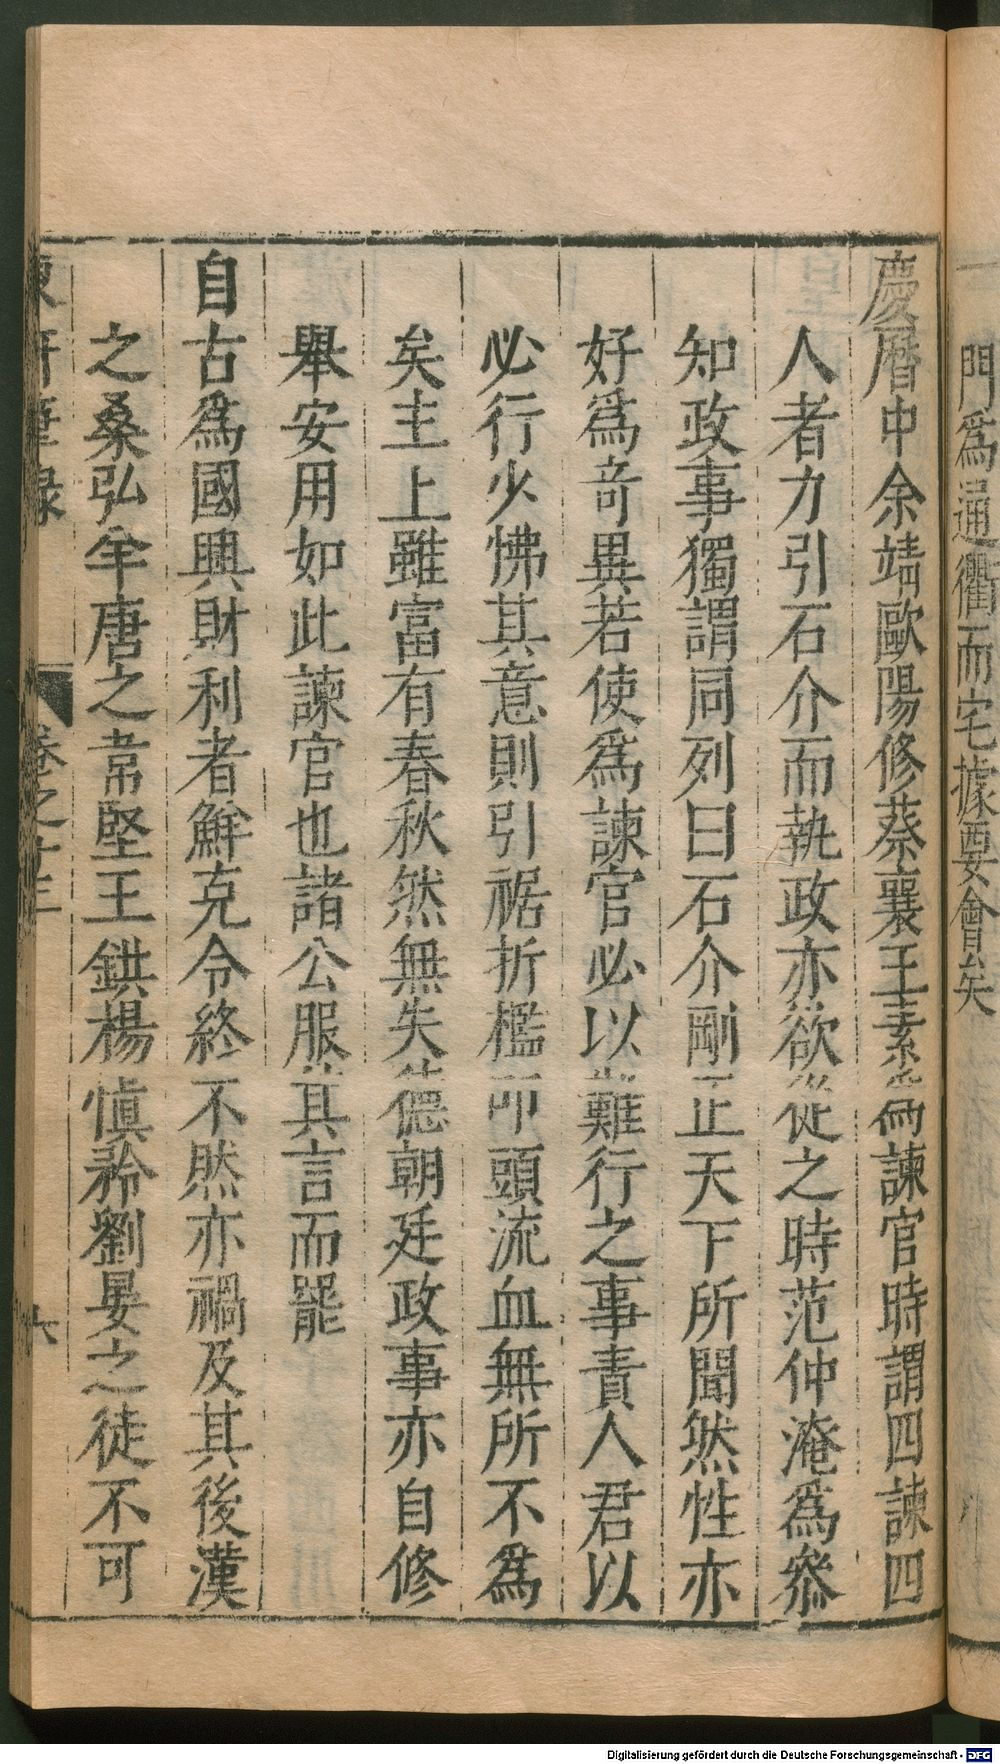 門爲通衢而宅據要會矣
慶曆中余靖歐陽修蔡襄王素爲諫官時謂四諫四
人者力引石介而執政亦欲從之時范仲淹爲叅
知政事獨謂同列曰石介剛正天下所聞然性亦
好爲奇異若使爲諫官必以難行之事責人君以
必行少怫其意則引裾折檻叩頭流血無所不爲
矣主上雖富有春秋然無失德朝廷政事亦自修
舉安用如此諫官也諸公服其言而罷
自古爲國興財利者鮮克令終不然亦禍及其後漢
之桑弘羊唐之韋堅王鉷楊慎矜劉晏之徒不可
東軒筆錄
卷之十三
六
Digitalisierung gefördert durch die Deutsche Forschungsgemeinschaft - DFG